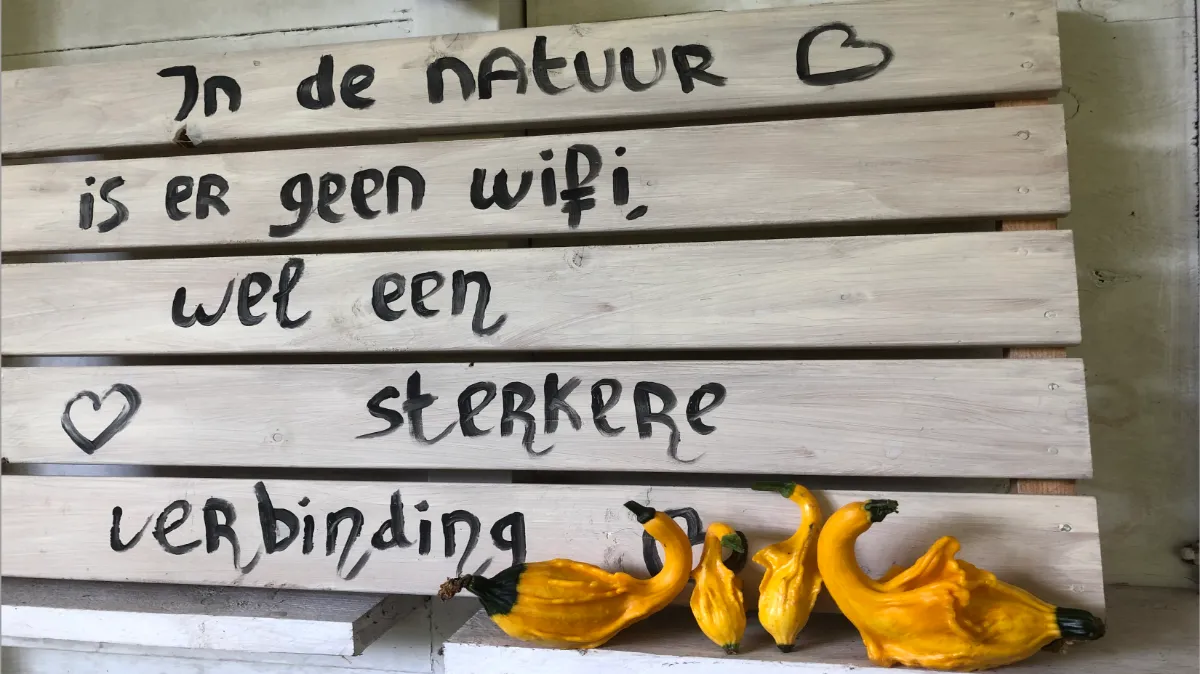 In de natuur
is er geen wifi,
wel een
sterkere
verbinding